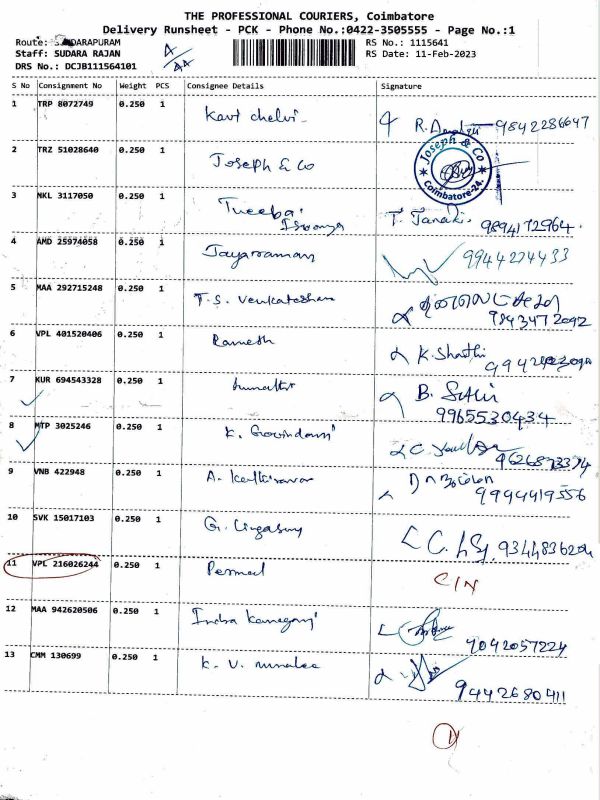 THE PROFESSIONAL COURIERS, Coimbatore
Delivery Runsheet - PCK - Phone No.:0422-3505555 - Page No.:1
Route: DARAPURAM
Staff: SUDARA RAJAN
DRS No.: DCJB111564101
RS No.: 1115641
RS Date: 11-Feb-2023
S No Consignment No Weight PCS Consignee Details Signature
1 TRP 8072749 0.250 1 Kavi chelvi 9842286647
2 TRZ 51028640 0.250 1 Joseph & Co
Joseph & Co
Coimbatore-24.
3 NKL 3117050 0.250 1 T. Janaki. 9894172964
4 AMD 25974058 0.250 1 Jayaraman 9944274433
5 MAA 292715248 0.250 1 T.S. Venkateshan
9843472092
6 VPL 401520406 0.250 1 Ramesh K. Shathi
7 KUR 694543328 0.250 1 B.
9965530434
8 MTP 3025246 0.250 1 K. Govindan
9 VNB 422948 0.250 1 A. Kathiravan
9994419556
10 SVK 15017103 0.250 1 G. Lingasamy
11 VPL 216026244 0.250 1 C/N
12 MAA 942620506 0.250 1 Indra
9042057224
13 CMM 130699 0.250 1 K. V.
9442680411
11